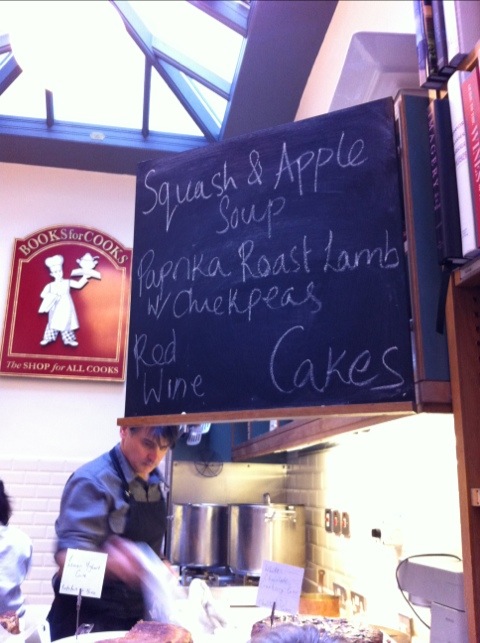 BOOKS for COOKS
The SHOP for ALL COOKS
Squash & Apple
Soup
Paprika Roast Lamb
w/ Chickpeas
Red
Wine
Cakes